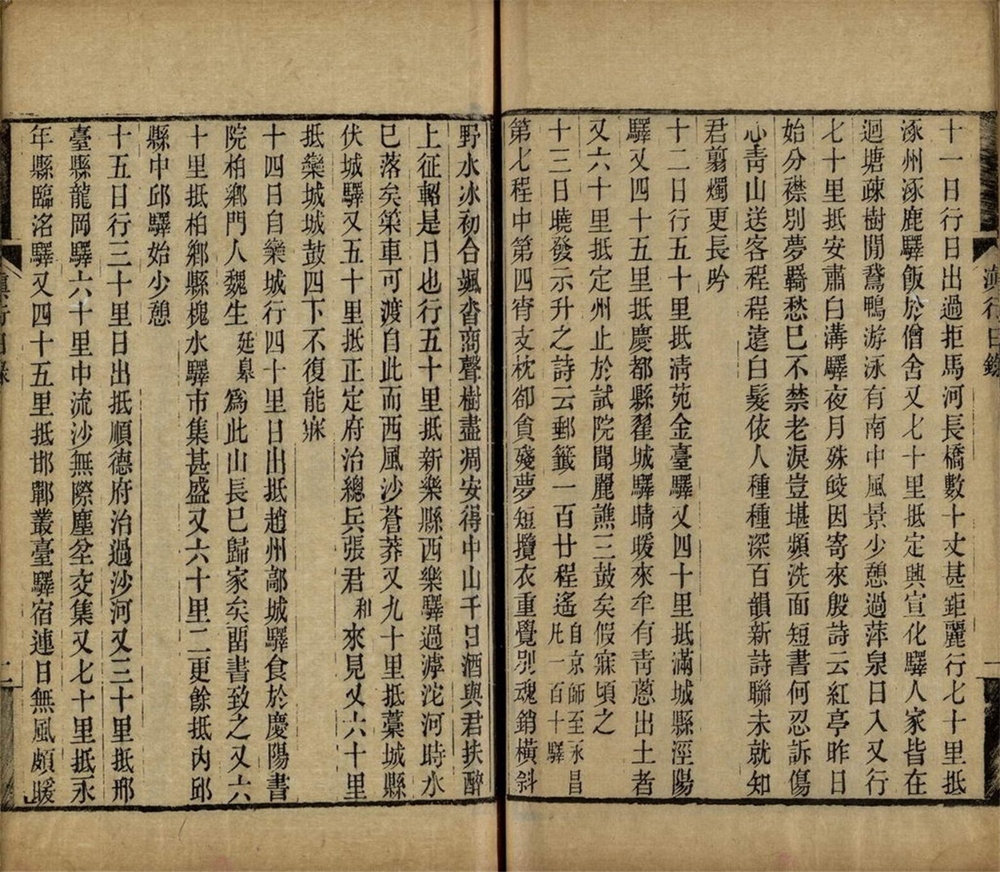 十一日行日出過拒馬河長橋數十丈甚鉅麗行七十里抵
涿州涿鹿驛飯於僧舍又七十里抵定興宣化驛人家皆在
迴塘疎樹閒鵞鴨游泳有南中風景少憩過萍泉日入又行
七十里抵安肅白溝驛夜月殊皎因寄來殷詩云紅亭昨日
始分襟別夢羇愁巳不禁老淚豈堪頻洗面短書何忍訴傷
心靑山送客程程遠白髮依人種種深百韻新詩聯未就知
君翦燭更長吟
十二日行五十里抵淸苑金臺驛又四十里抵滿城縣涇陽
驛又四十五里抵慶都縣翟城驛晴暖來牟有靑蔥出土者
又六十里抵定州止於試院聞麗譙三鼓矣假寐頃之
十三日曉發示升之詩云郵籤一百廿程遙自京師至永昌凡一百十驛
第七程中第四宵支枕卻貪殘夢短攬衣重覺別魂銷橫斜
野水冰初合颯沓商聲樹盡凋安得中山千日酒與君扶醉
上征軺是日也行五十里抵新樂縣西樂驛過滹沱河時水
巳落矣䇿車可渡自此而西風沙蒼莽又九十里抵藁城縣
伏城驛又五十里抵正定府治總兵張君和來見又六十里
抵欒城城鼓四下不復能寐
十四日自欒城行四十里日出抵趙州鄗城驛食於慶陽書
院柏鄕門人魏生延臯爲此山長巳歸家矣畱書致之又六
十里抵柏鄕縣槐水驛市集甚盛又六十里二更餘抵內邱
縣中邱驛始少憩
十五日行三十里日出抵順德府治過沙河又三十里抵邢
臺縣龍岡驛六十里中流沙無際塵坌交集又七十里抵永
年縣臨洺驛又四十五里抵邯鄲叢臺驛宿連日無風頗暖
滇行日錄
一
滇行日錄
二